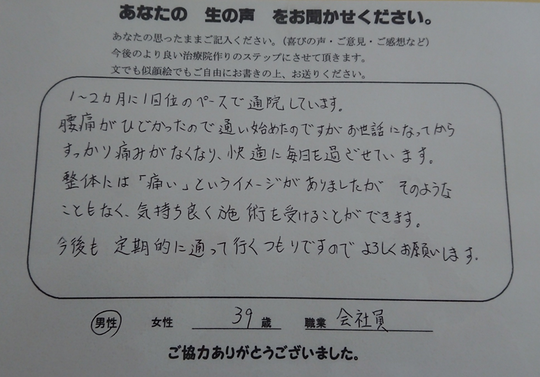 あなたの 生の声 をお聞かせください。
あなたの思ったままご記入ください。（喜びの声・ご意見・ご感想など）
今後のより良い治療院作りのステップにさせて頂きます。
文でも似顔絵でもご自由にお書きの上、お送りください。
1～2カ月に1回位のペースで通院しています。
腰痛がひどかったので通い始めたのですがお世話になってから
すっかり痛みがなくなり、快適に毎日を過ごせています。
整体には「痛い」というイメージがありましたが そのような
こともなく、気持ち良く施術を受けることができます。
今後も 定期的に通って行くつもりですので よろしくお願いします.
男性 女性 39 歳 職業 会社員
ご協力ありがとうございました。